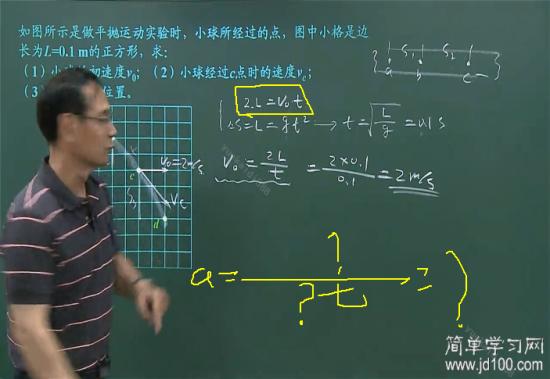 如图所示是做平抛运动实验时,小球所经过的点,图中小格是边
长为L=0.1 m的正方形,求:
(1)小 初速度v₀;(2)小球经过c点时的速度v꜀;
(3) 位置。
S₁ S₂
a b c
2L=V₀t
ΔS=L=gt² → t=√(L/g)=0.1s
V₀=2L/t =2×0.1/0.1=2m/s
V₀=2m/s
c
d
a=?/?t=?
简单学习网
www.jd100.com